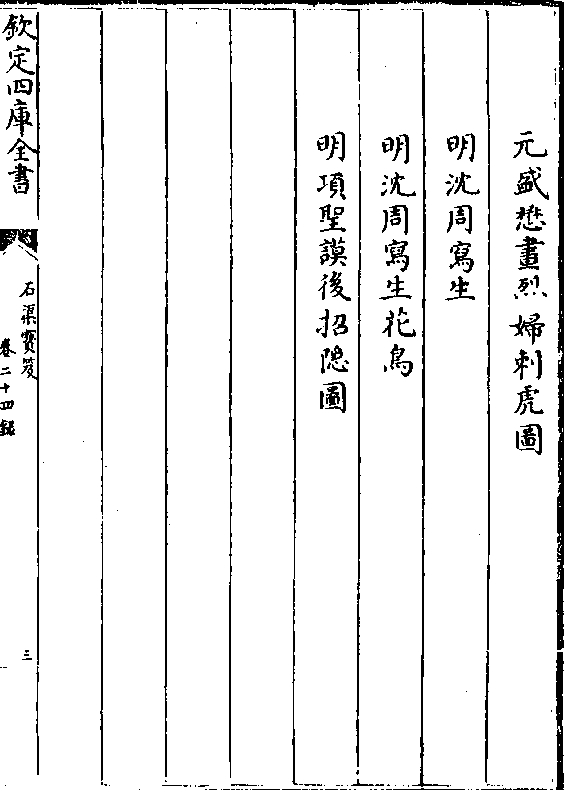 元盛懋畫烈婦刺虎圖
明沈周寫生
明沈周寫生花鳥
明項聖謨後招隐圖
欽定四庫全書
石渠寶笈
卷二十四録
三